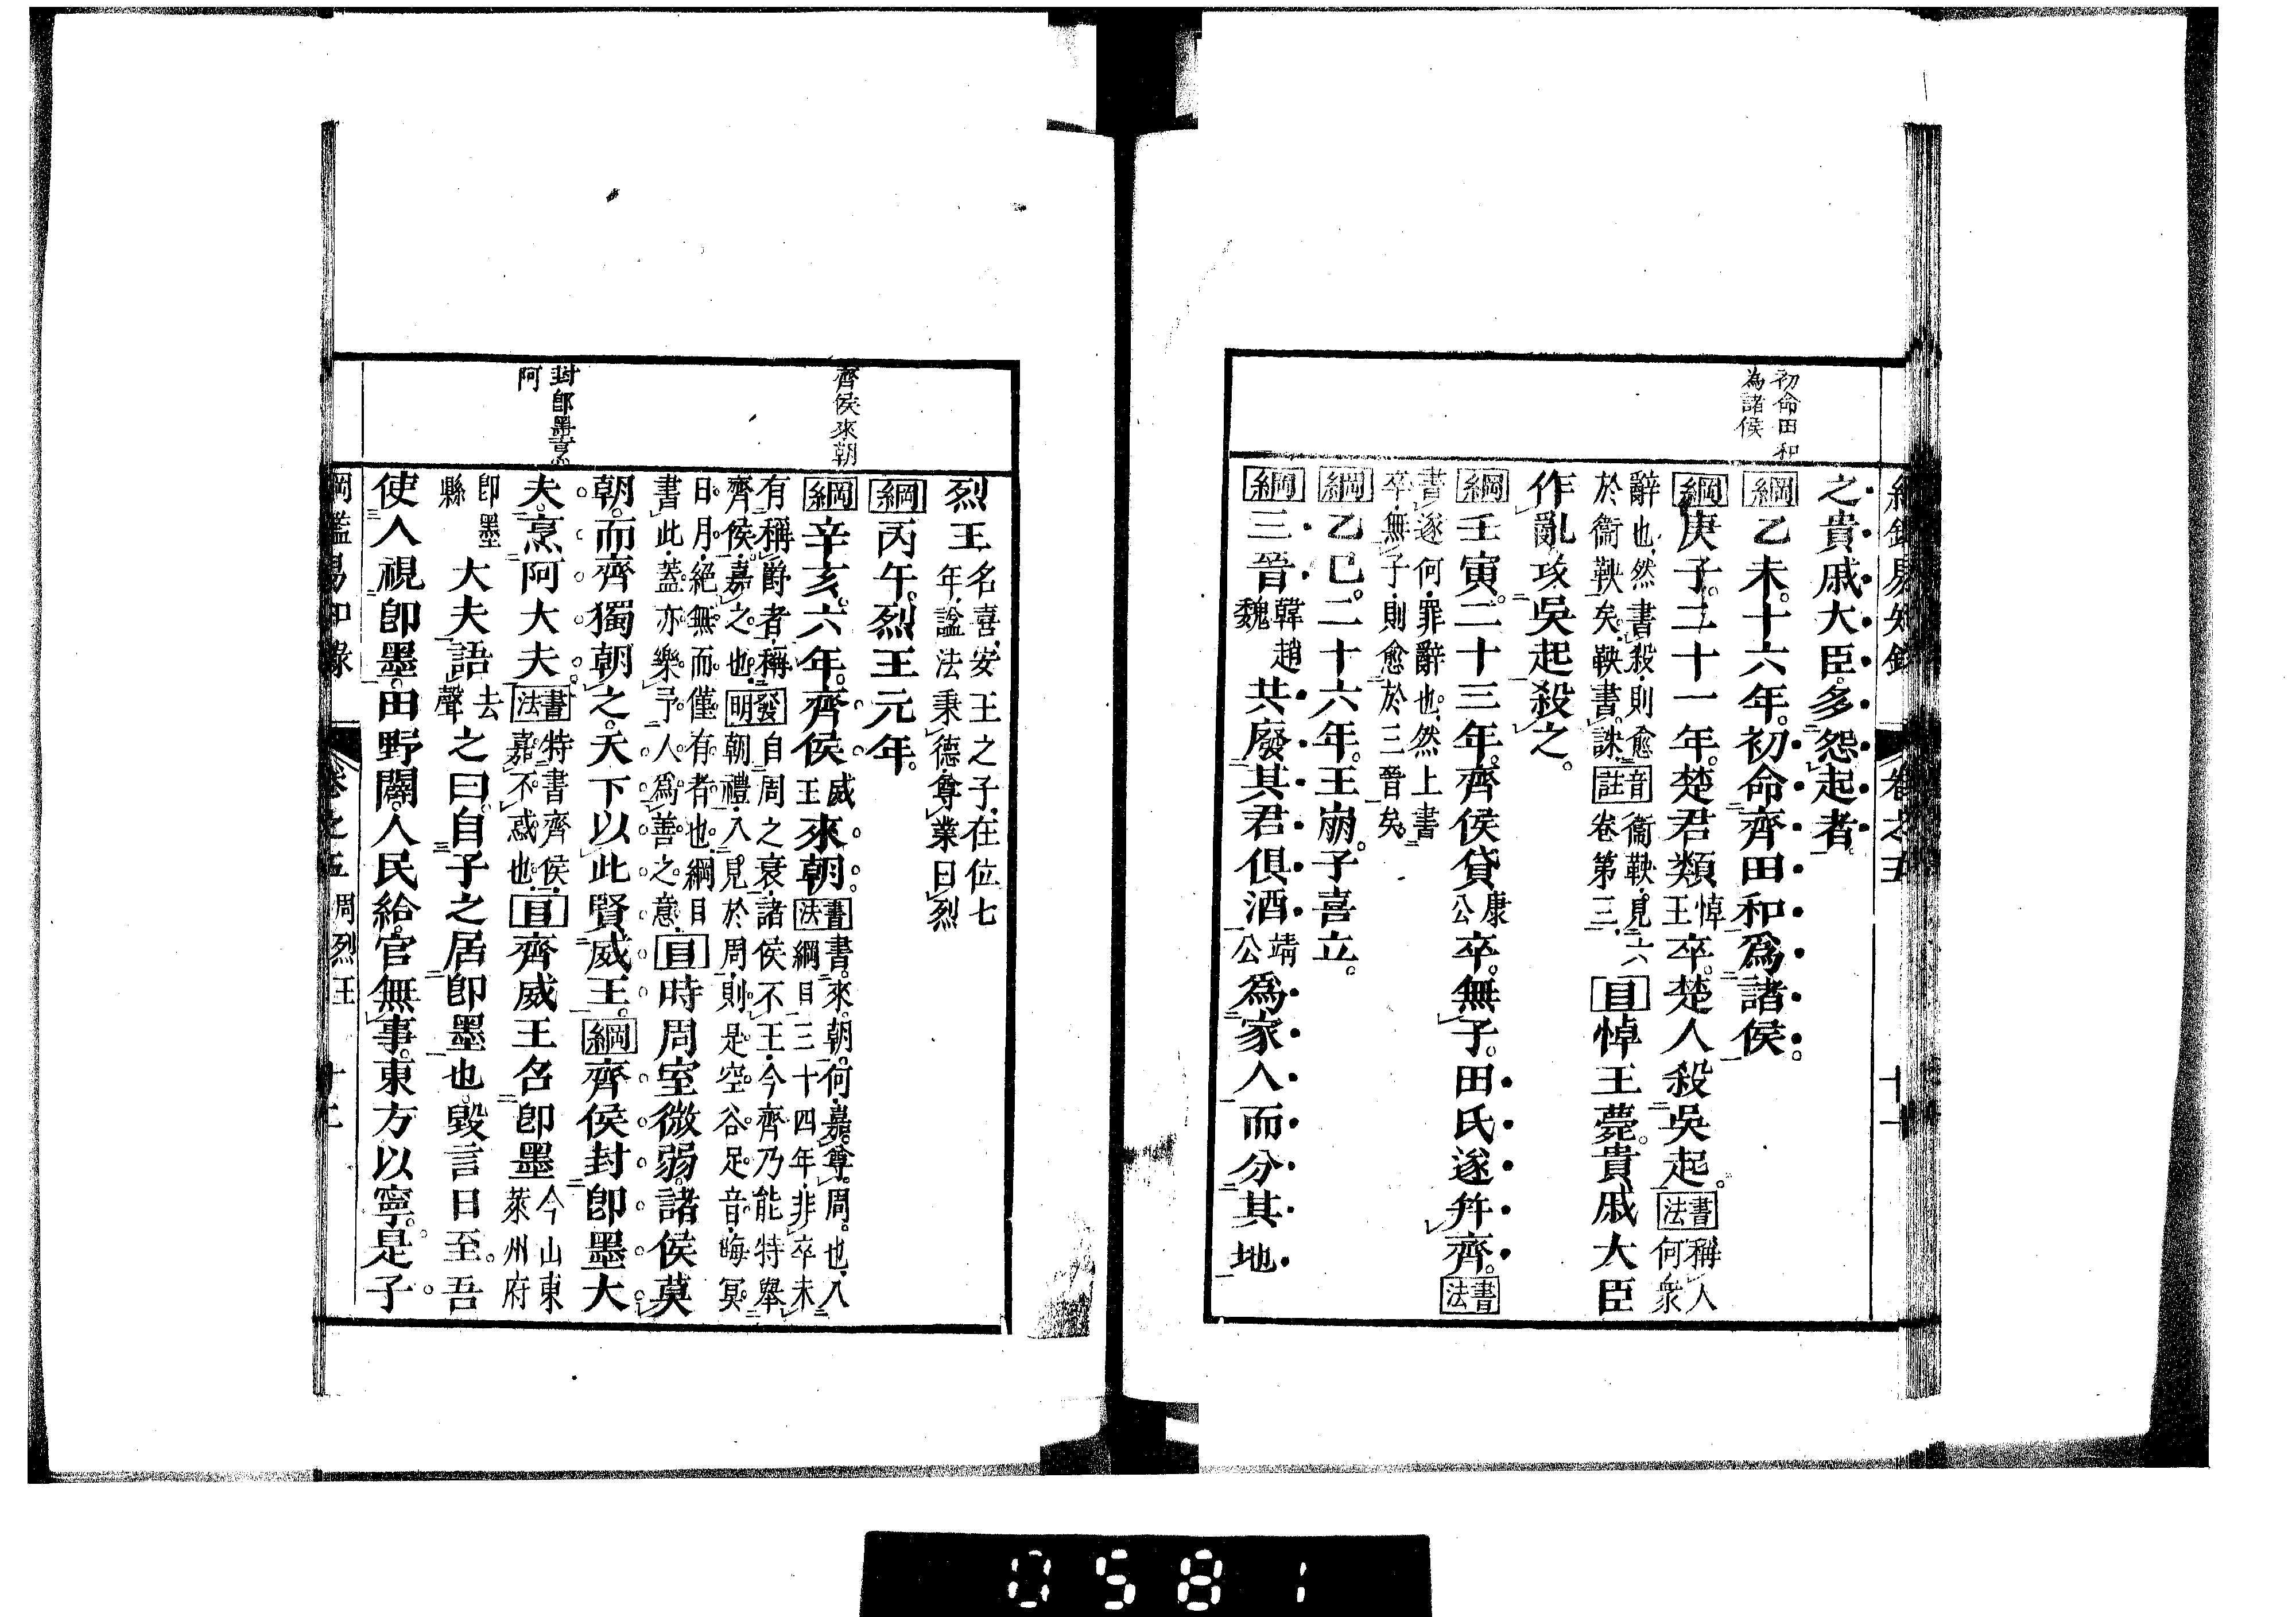 綱鑑易知錄 卷之五 十一
初命田和
為諸侯
之貴戚大臣。多怨起者。
綱乙未。十六年。初命齊田和爲諸侯。
綱庚子。二十一年。楚君類悼王卒。楚人殺吳起。書法稱人何衆
辭也、然書殺、則愈於衞鞅矣、鞅書誅、音註衞鞅、見六卷第三、目悼王薨。貴戚大臣
作亂攻吳起殺之。
綱壬寅。二十三年。齊侯貸康公卒。無子。田氏遂幷齊。書法
書遂何、罪辭也、然上書卒、無子、則愈於三晉矣。
綱乙巳。二十六年。王崩。子喜立。
綱三晉韓趙魏共廢其君俱酒靖公爲家人而分其地
齊侯來朝
封卽墨烹
阿
烈王名喜、安王之子、在位七年、諡法秉德尊業曰烈
綱丙午。烈王元年。
綱辛亥。六年。齊侯威王來朝。書法書。來。朝。何、嘉。尊。周。也、入綱目三十四年、非卒未
有稱爵者、稱齊侯、嘉之也、發明自周之衰、諸侯不王、今齊乃能特舉朝禮、入見於周、則是空谷足音、晦冥
日月、絕無而僅有者也、綱目書此、蓋亦樂予人爲善之意、目時周室微弱。諸侯莫
朝。而齊獨朝之。天下以此賢威王。綱齊侯封卽墨大
夫。烹阿大夫。書法特書齊侯、嘉不惑也、目齊威王召卽墨今山東萊州府
卽墨縣大夫語去聲之曰。自子之居卽墨也。毀言日至。吾
使人視卽墨。田野闢。人民給。官無事。東方以寧。是子
綱鑑易知錄 卷之五 周烈王 十二
0581